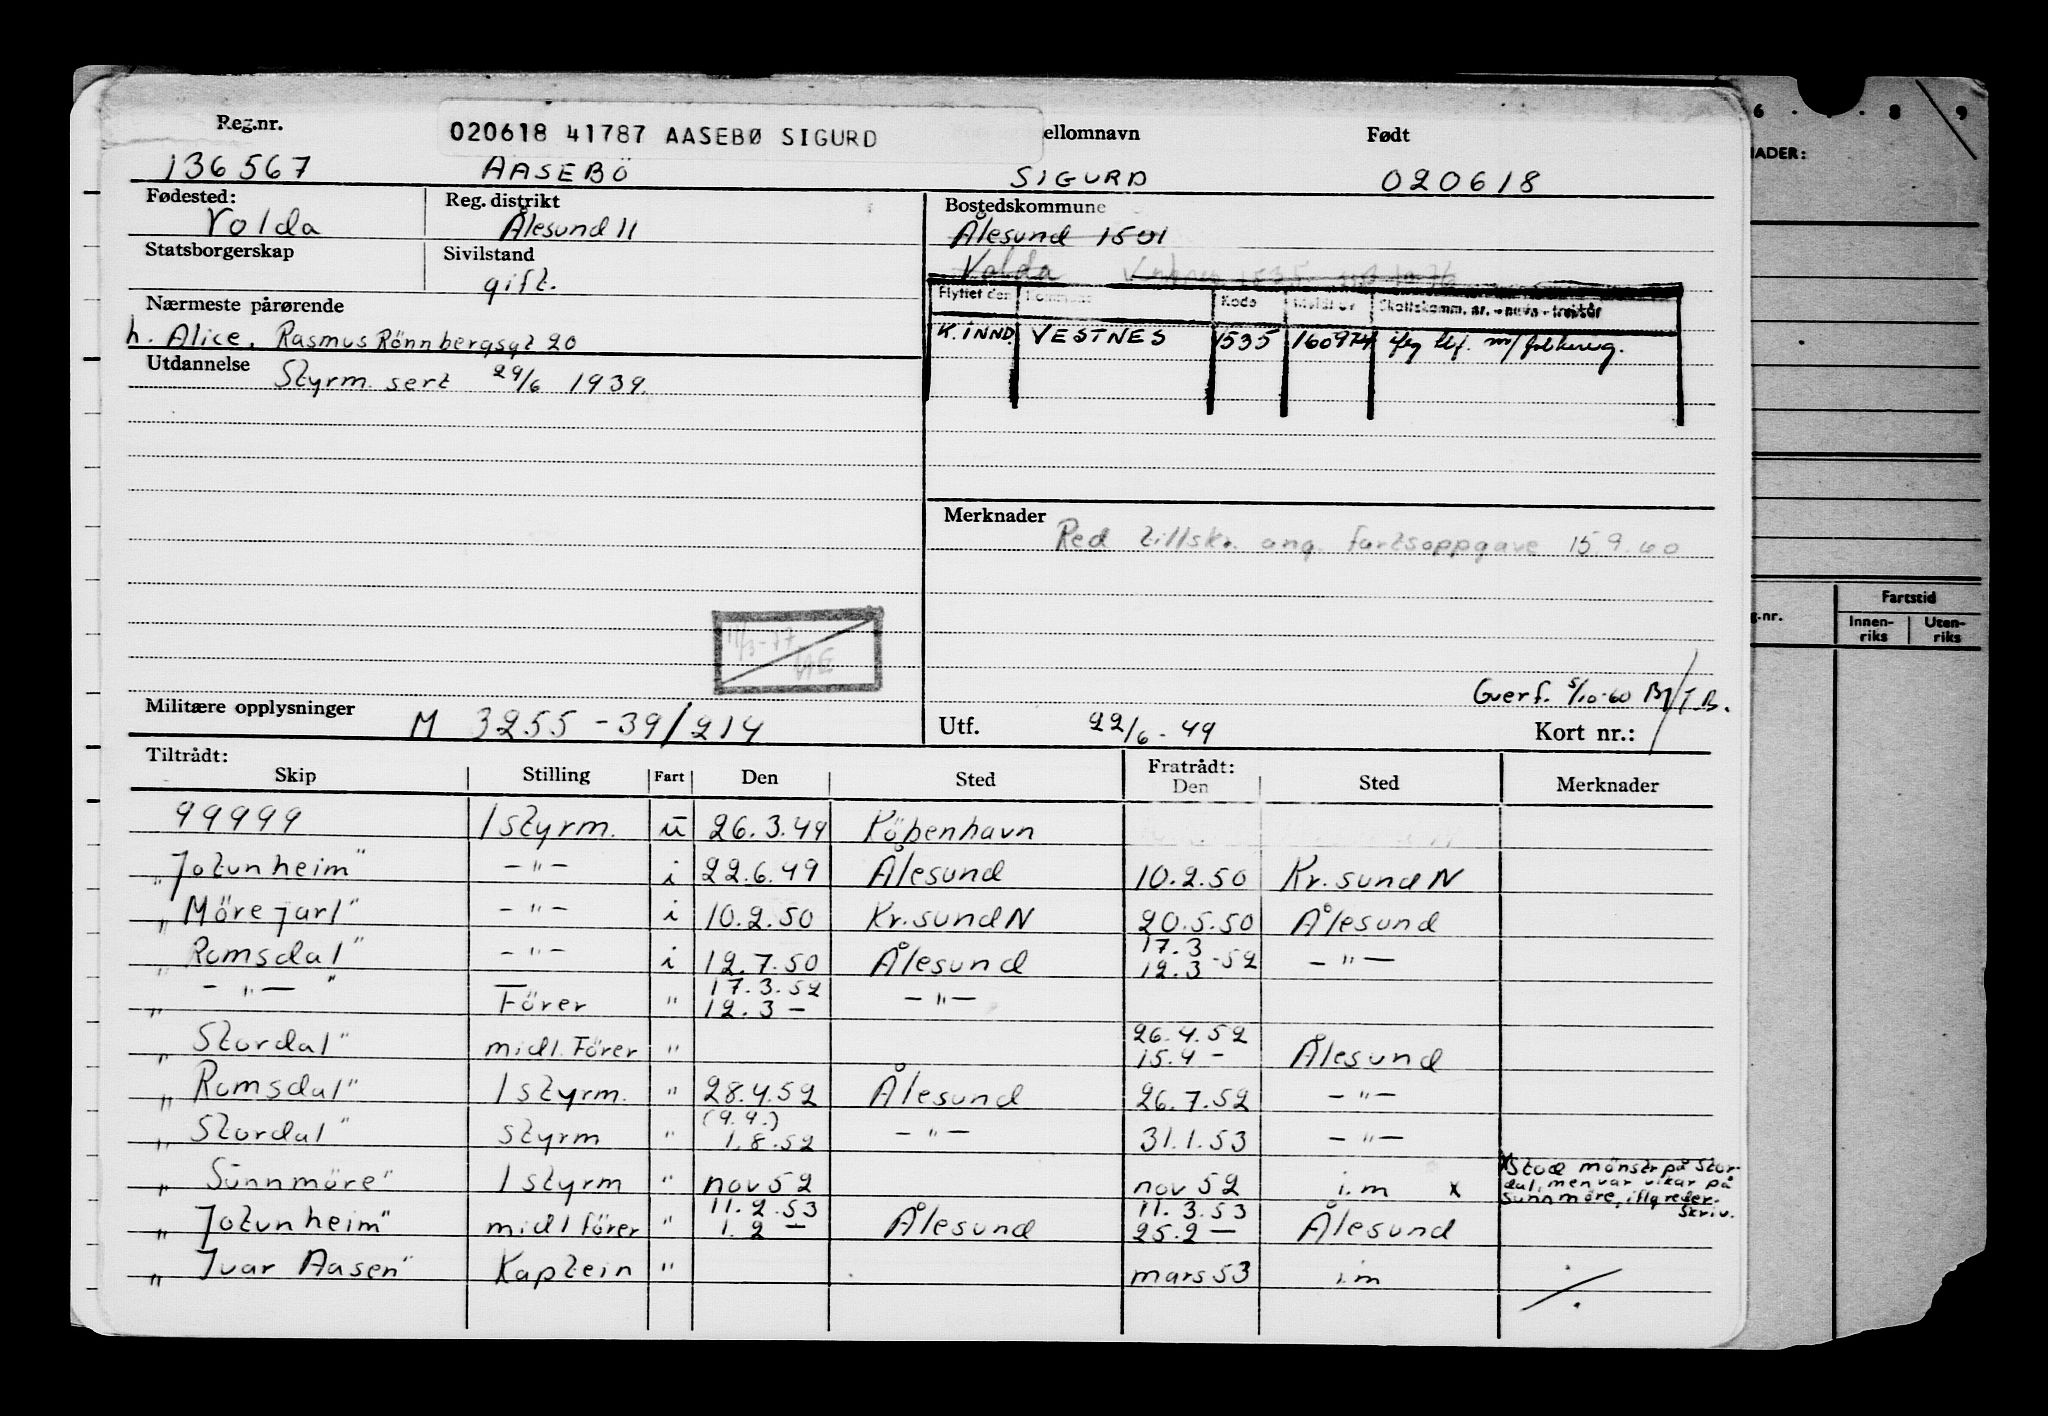 Reg.nr. 020618 41787 AASEBØ SIGURD ellomnavn Født
136567 AASEBÖ SIGURD 020618
Fødested: Reg. distrikt Bostedskommune
Volda Ålesund 11 Ålesund 1501
Statsborgerskap Sivilstand Volda
gift.
Nærmeste pårørende Flyttet den Kode Skattskomm. nr. - navn -
h. Alice, Rasmus Rönnbergsgt 20 K. INND. VESTNES 1535 160974 iflg tlf. m/folkereg.
Utdannelse Styrm. sert 29/6 1939.
Merknader Red tillskr. ang. fartsoppgave 15.9.60
11/3-77
Gverf. 5/10-60 /T.B.
Militære opplysninger M 3255-39/214 Utf. 22/6-49 Kort nr.:
Tiltrådt: Fratrådt:
Skip Stilling Fart Den Sted Den Sted Merknader
99999 1 styrm. u 26.3.49 Köbenhavn
"Jotunheim" -"- i 22.6.49 Ålesund 10.2.50 Kr.sund N
"Möre jarl" -"- i 10.2.50 Kr.sund N 20.5.50 Ålesund
"Romsdal" -"- i 12.7.50 Ålesund 17.3 12.3-52 -"-
" -"- " Förer " 17.3.52 12.3- -"-
"Stordal" midl. Förer " 26.4.52 15.4- Ålesund
"Romsdal" 1 styrm. " 28.4.52 Ålesund 26.7.52 -"-
"Stordal" styrm " (9.9.) 1.8.52 -"- 31.1.53 -"-
"Sunnmöre" 1 styrm " nov 52 nov 52 i.m x x Stod mönstr på Stor-
dal, men var vikar på
Sunnmöre, iflg reder.
skriv.
"Jotunheim" midl förer " 11.2.53 1.2- Ålesund 11.3.53 25.2- Ålesund
"Ivar Aasen" Kaptein " mars 53 i.m
6 . . 8 9
NADER:
g.nr. Fartstid
Innen-
riks Uten-
riks